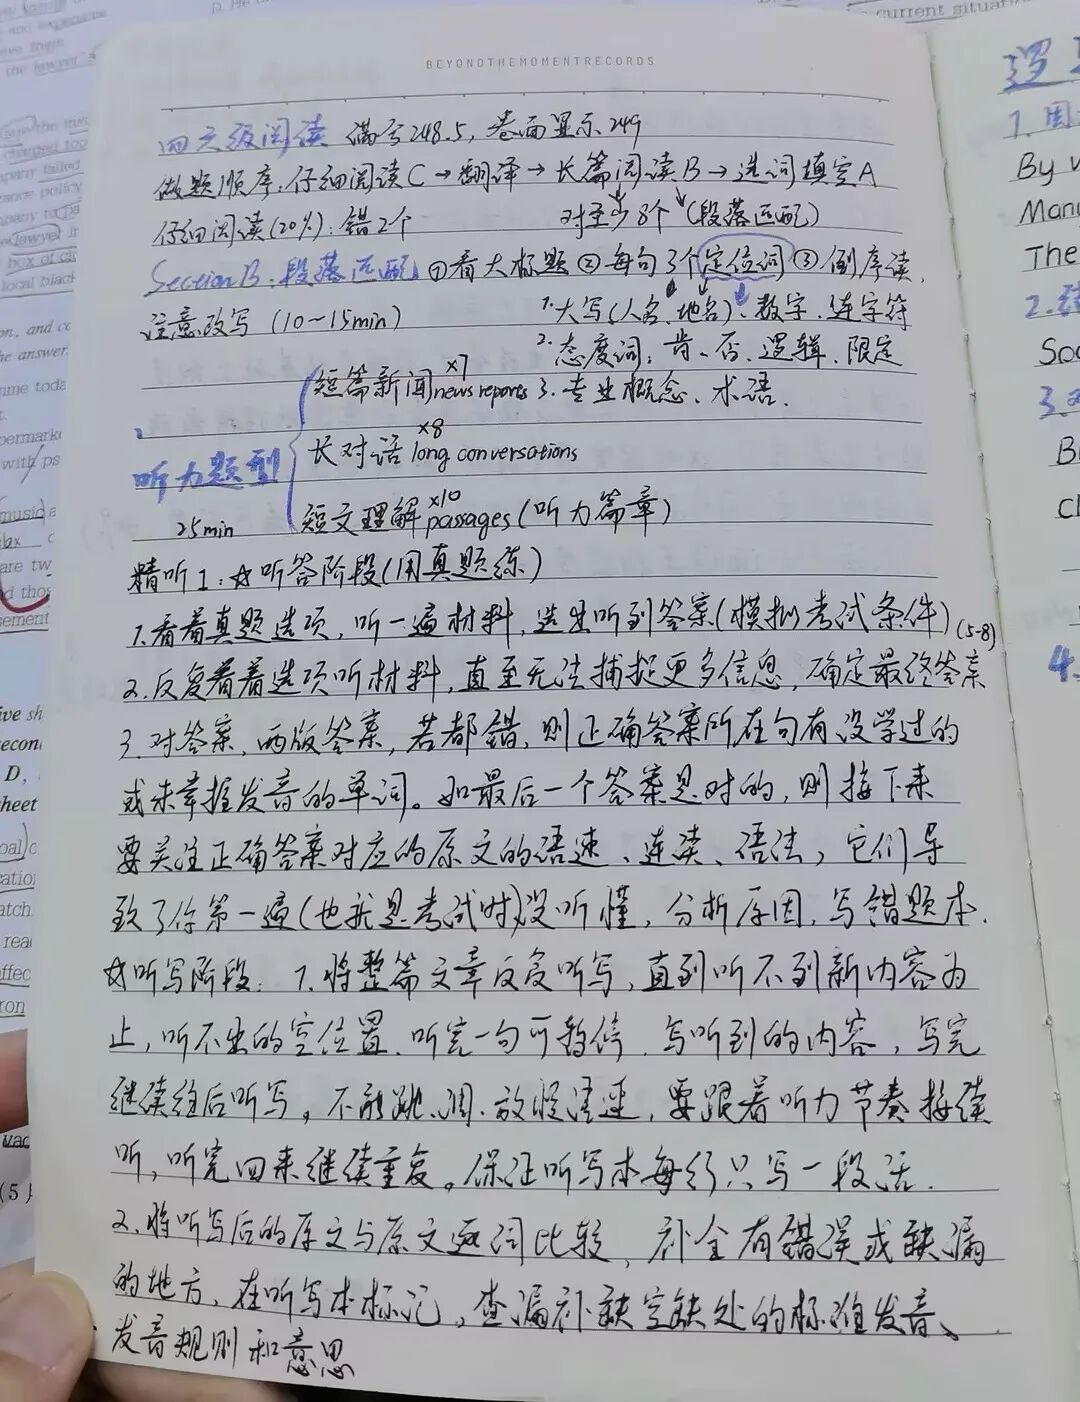 BEYONDTHEMOMENTRECORDS
四六级阅读 满分248.5，卷面显示249
做题顺序：仔细阅读C→翻译→长篇阅读B→选词填空A
仔细阅读(20%)：错2个 对至少8个 (段落匹配)
Section B：段落匹配 ①看大标题 ②每句3个定位词 ③倒序读，
注意改写 (10~15min) 1.大写(人名、地名)、数字、连字符
2.态度词：肯、否、逻辑、限定
短篇新闻news reports ×7 3.专业概念、术语.
长对话 long conversations ×8
听力题型
25min 短文理解 passages ×10 (听力篇章)
精听1：☆听答阶段(用真题练)
1.看着真题选项，听一遍材料，选出听到答案(模拟考试条件)
(5-8)
2.反复看着选项听材料，直至无法捕捉更多信息，确定最终答案
3.对答案，两版答案，若都错，则正确答案所在句有没学过的
或未掌握发音的单词。如最后一个答案是对的，则接下来
要关注正确答案对应的原文的语速、连读、语法，它们导
致了你第一遍(也就是考试时)没听懂，分析原因，写错题本.
☆听写阶段：1.将整篇文章反复听写，直到听不到新内容为
止，听不出的空位置.听完一句可暂停.写听到的内容，写完
继续往后听写。不能跳、调、放慢语速，要跟着听力节奏接续
听，听完回来继续重复。保证听写本每行只写一段话.
2.将听写后的原文与原文逐词比较，补全有错误或缺漏
的地方，在听写本标记，查漏补缺空缺处的标准发音、
发音规则和意思
current situation
1.
By
Man
The
2.
So
3.
B
C
4.